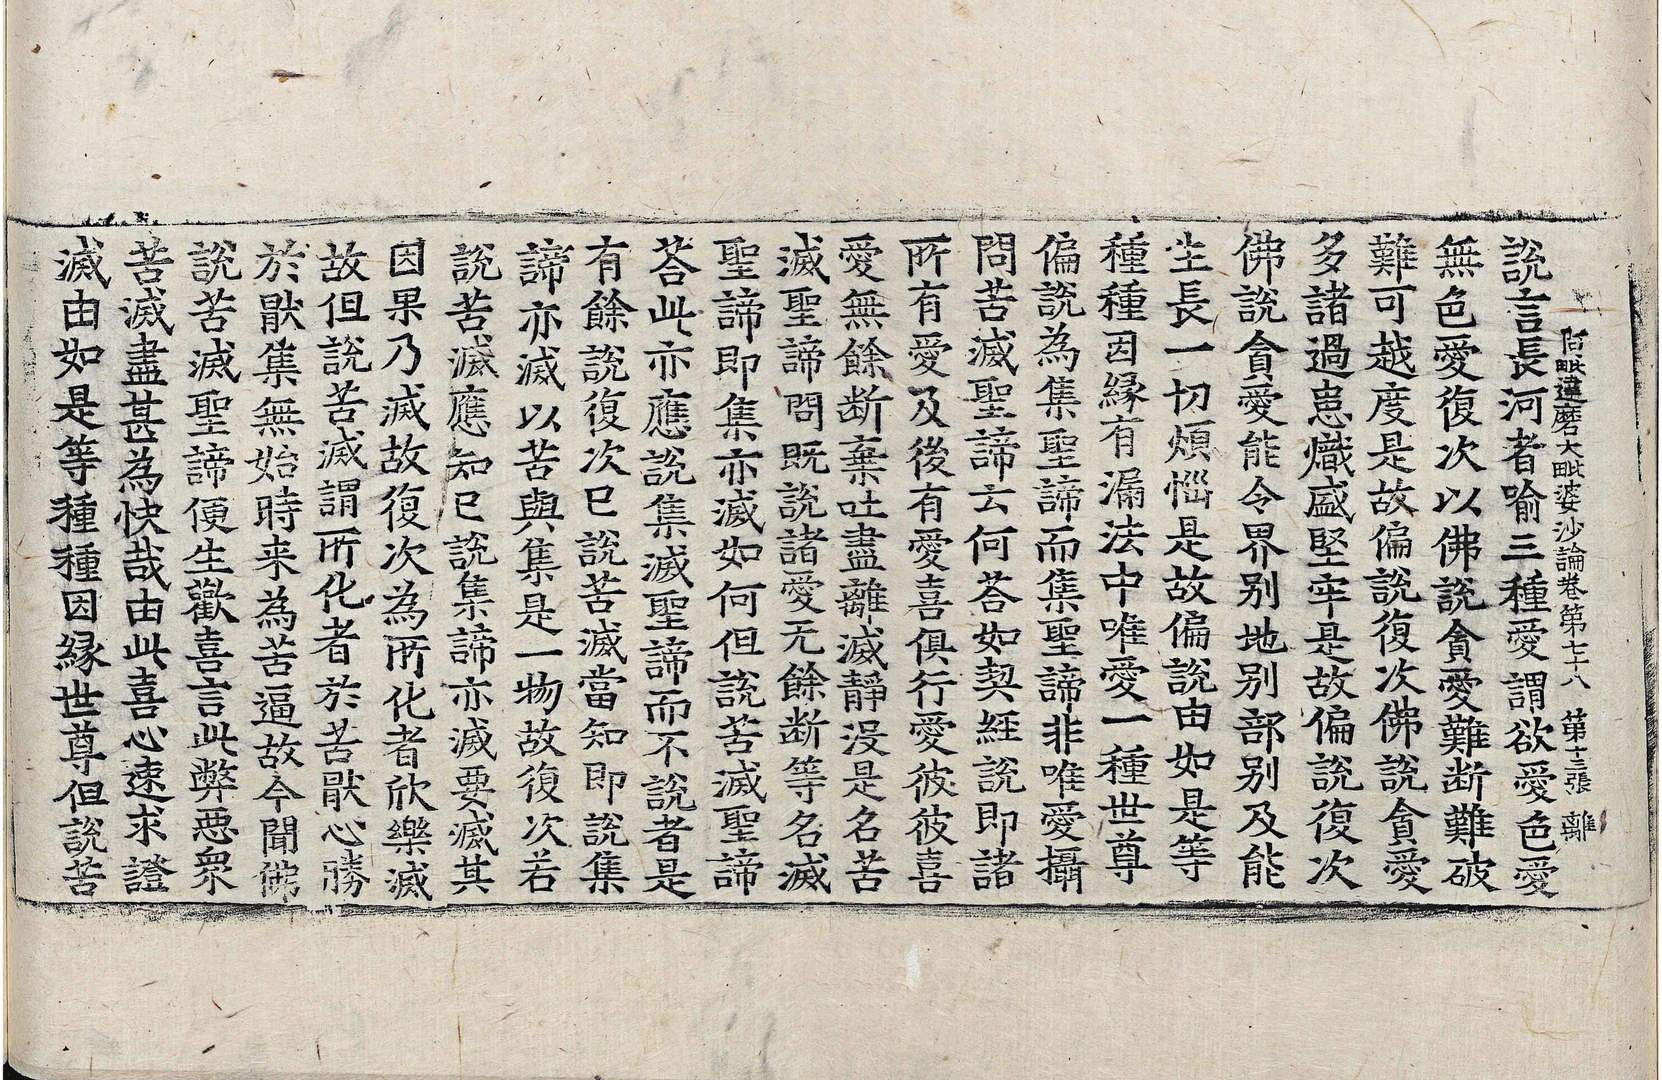 阿毗達磨大毗婆沙論卷第七十八 第十三張 離
説言長河者喻三種愛謂欲愛色愛
無色愛復次以佛説貪愛難断難破
難可越度是故偏説復次佛説貪愛
多諸過患熾盛堅牢是故偏説復次
佛説貪愛能令界别地别部别及能
生長一切煩惱是故偏説由如是等
種種因縁有漏法中唯愛一種世尊
偏説為集聖諦而集聖諦非唯愛攝
問苦滅聖諦云何荅如契経説即諸
所有愛及後有愛喜俱行愛彼彼喜
愛無餘断棄吐盡離滅靜没是名苦
滅聖諦問既説諸愛无餘断等名滅
聖諦即集亦滅如何但説苦滅聖諦
荅此亦應説集滅聖諦而不説者是
有餘説復次已説苦滅當知即説集
諦亦滅以苦與集是一物故復次若
説苦滅應知已説集諦亦滅要滅其
因果乃滅故復次為所化者欣樂滅
故但説苦滅謂所化者於苦猒心勝
於猒集無始時来為苦逼故今聞佛
説苦滅聖諦便生歡喜言此弊惡衆
苦滅盡甚為快哉由此喜心速求證
滅由如是等種種因縁世尊但説苦